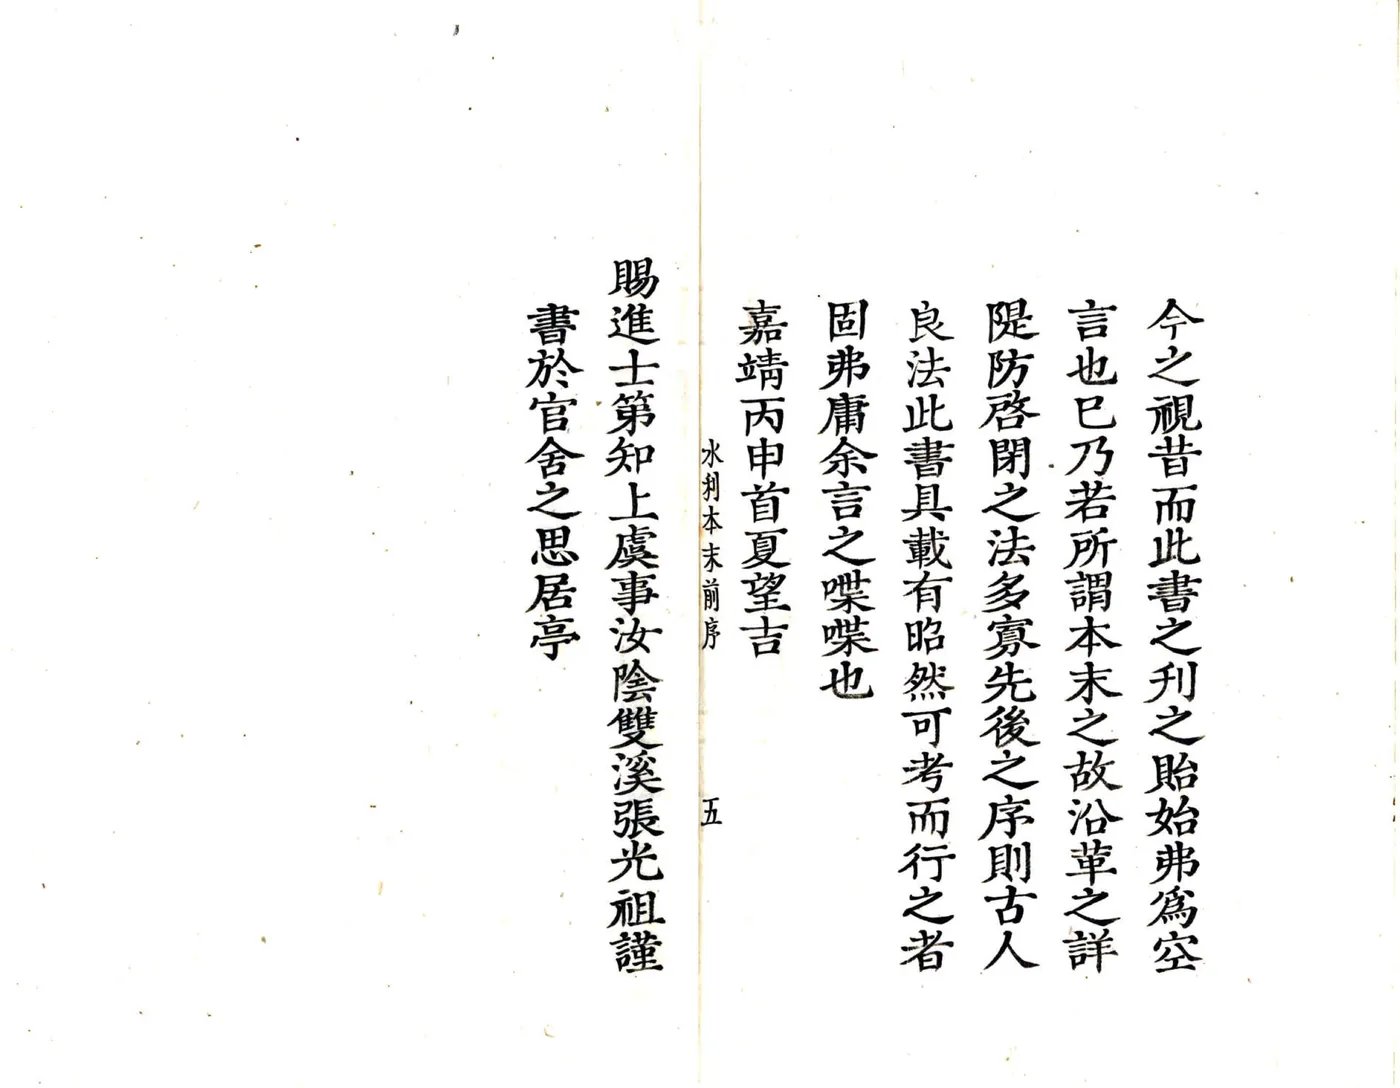 今之視昔而此書之刋之貽始弗爲空
言也巳乃若所謂本末之故沿革之詳
隄防啓閉之法多寡先後之序則古人
良法此書具載有昭然可考而行之者
固弗庸余言之喋喋也
嘉靖丙申首夏望吉
水利本末前序 五
賜進士第知上虞事汝陰雙溪張光祖謹
書於官舍之思居亭